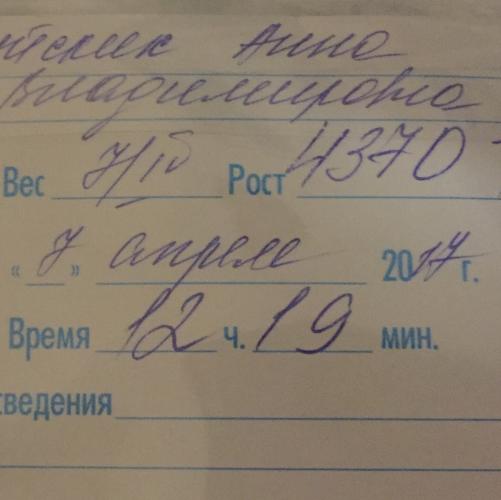 Анна
Владимировна
Вес 7/IV Рост 4370
«7» апреля 2017 г.
Время 12 ч. 19 мин.
сведения